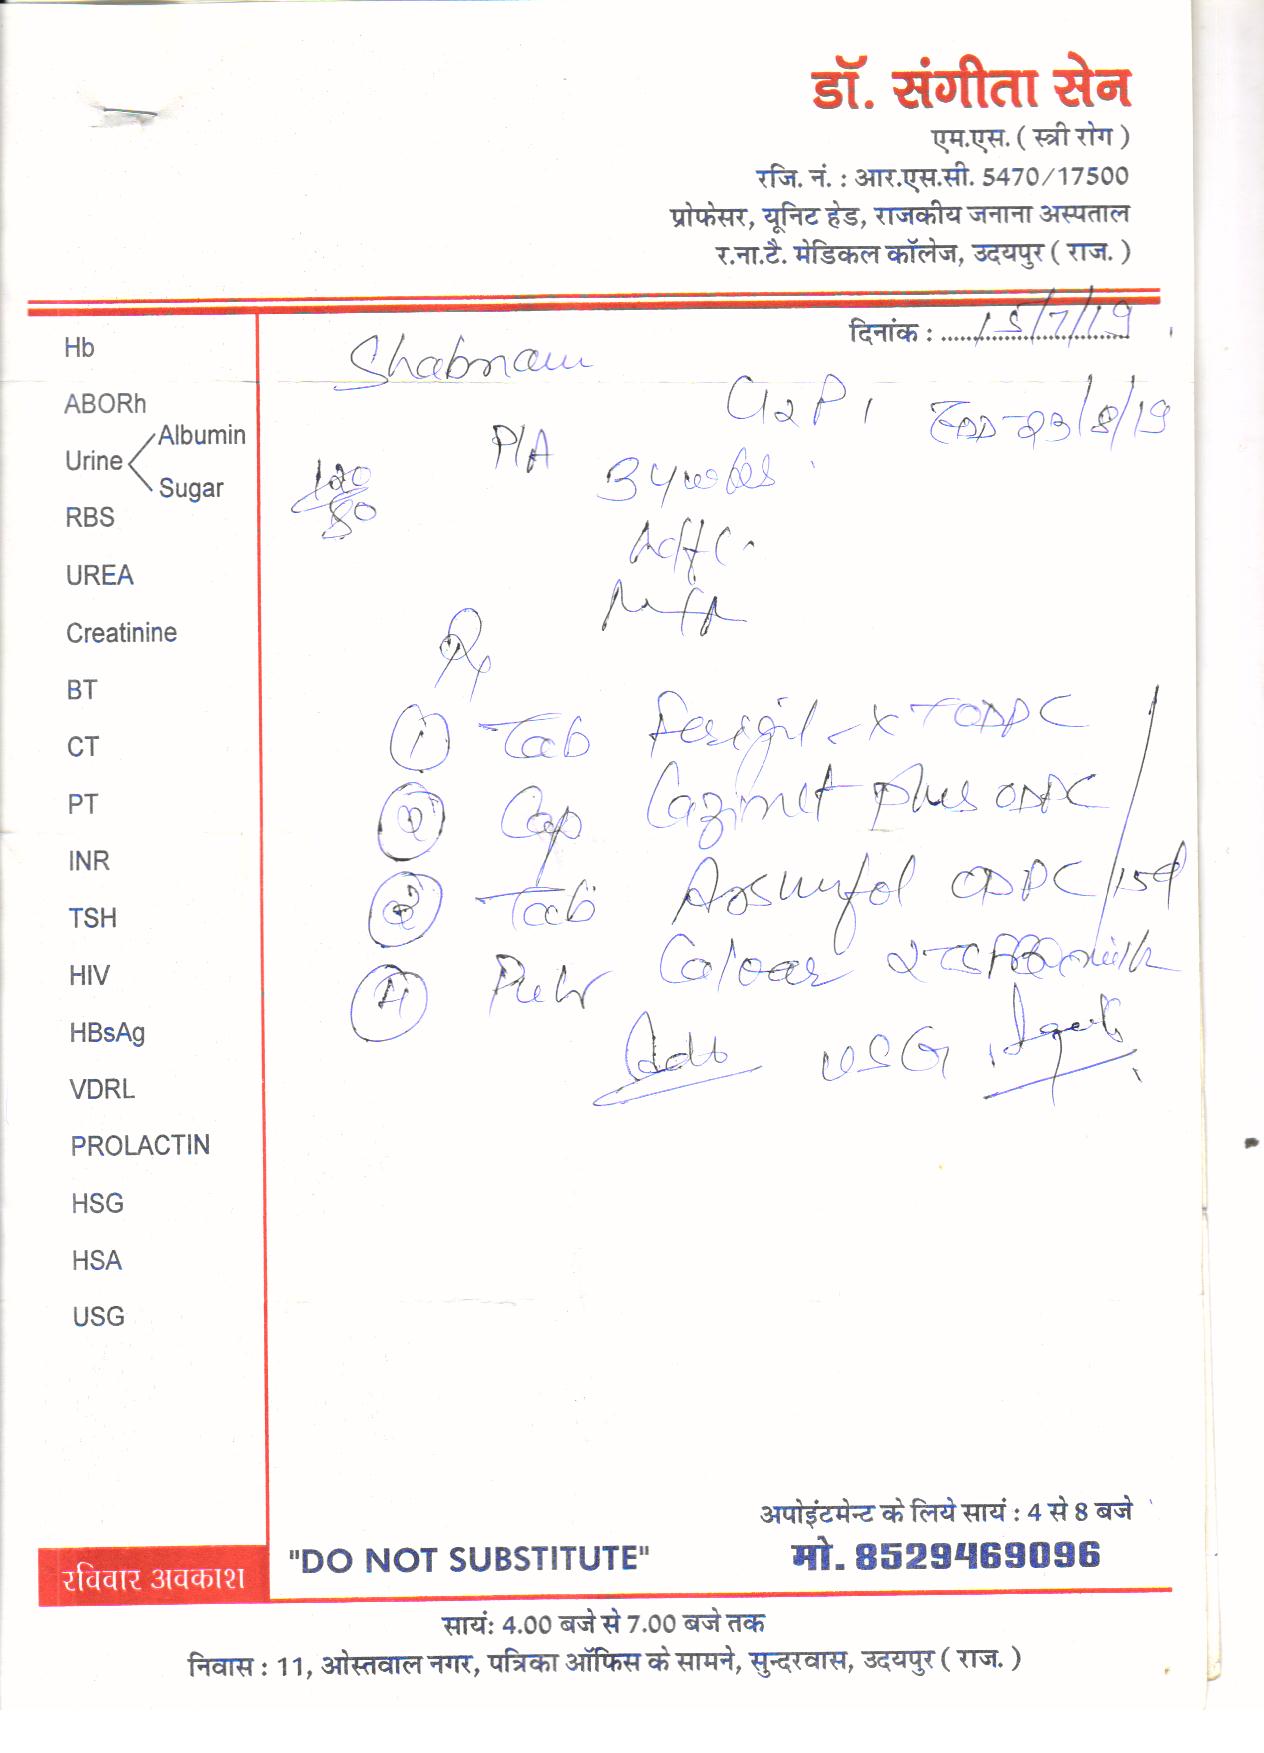 डॉ. संगीता सेन
एम.एस. ( स्त्री रोग )
रजि. नं. : आर.एस.सी. 5470/17500
प्रोफेसर, यूनिट हेड, राजकीय जनाना अस्पताल
र.ना.टै. मेडिकल कॉलेज, उदयपुर ( राज. )
दिनांक : 15/7/19
Shabnam
G2P1 EDD-23/8/19
P/A 34 wks
120/80
Rx
1 Tab -XT OD PC
2 Cap plus OD PC
3 Tab OD PC /15d
4 2TSF milk
Adv USG
Hb
ABORh
Urine Albumin
Sugar
RBS
UREA
Creatinine
BT
CT
PT
INR
TSH
HIV
HBsAg
VDRL
PROLACTIN
HSG
HSA
USG
अपोइंटमेन्ट के लिये सायं : 4 से 8 बजे
रविवार अवकाश "DO NOT SUBSTITUTE" मो. 8529469096
सायं: 4.00 बजे से 7.00 बजे तक
निवास : 11, ओस्तवाल नगर, पत्रिका ऑफिस के सामने, सुन्दरवास, उदयपुर ( राज. )